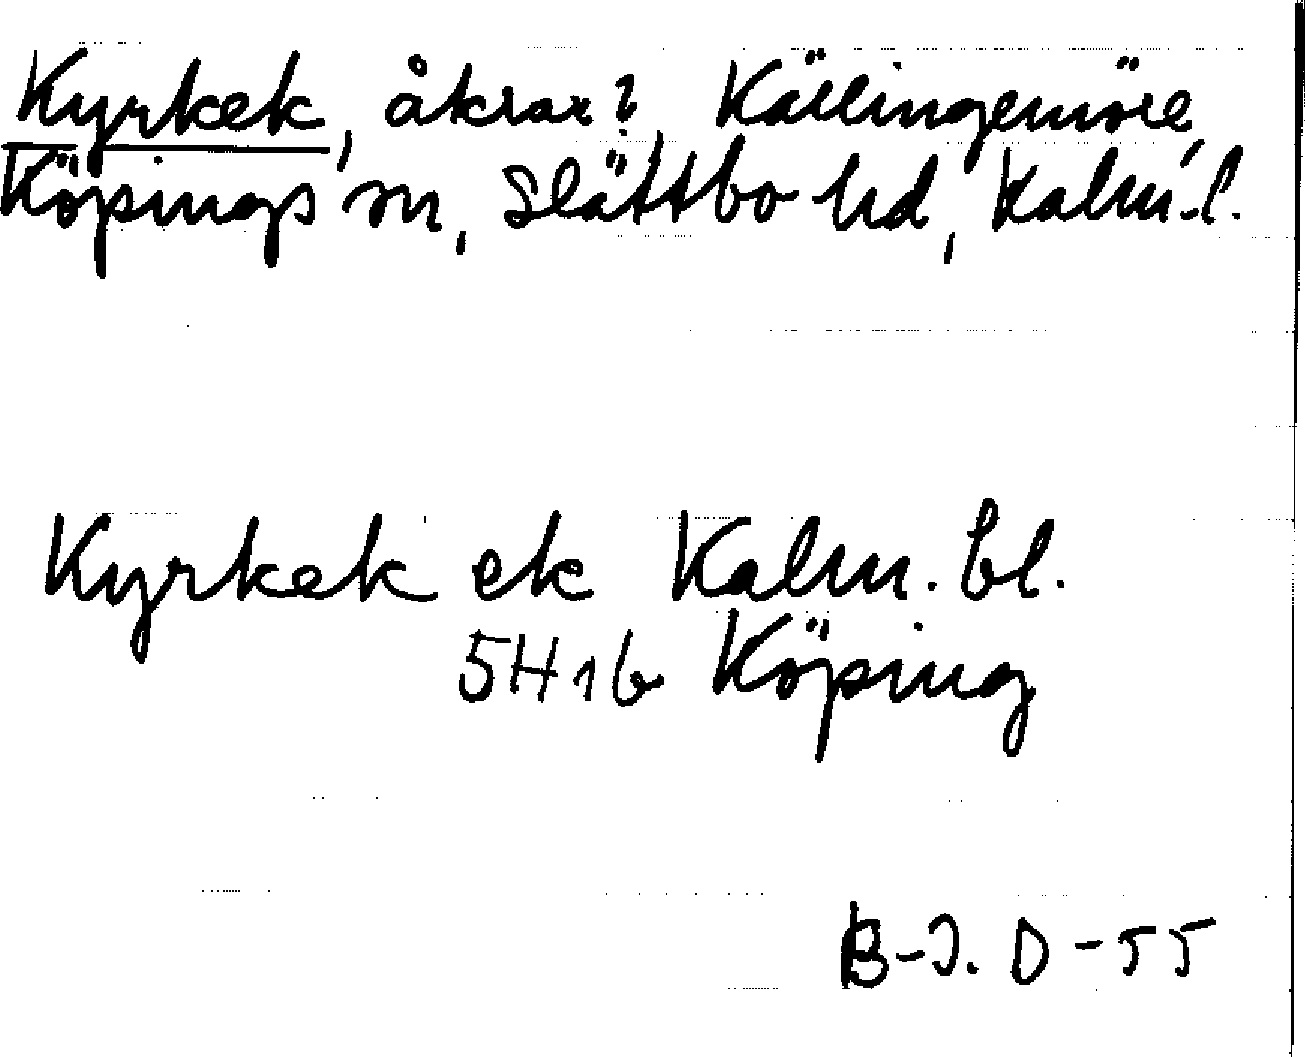 Kyrkek, åkrar? Källingemöre,
Köpings sn, Slättbo hd, Kalm. l.
Kyrkek ek Kalm. bl.
5H1b Köping
B-J. D -55